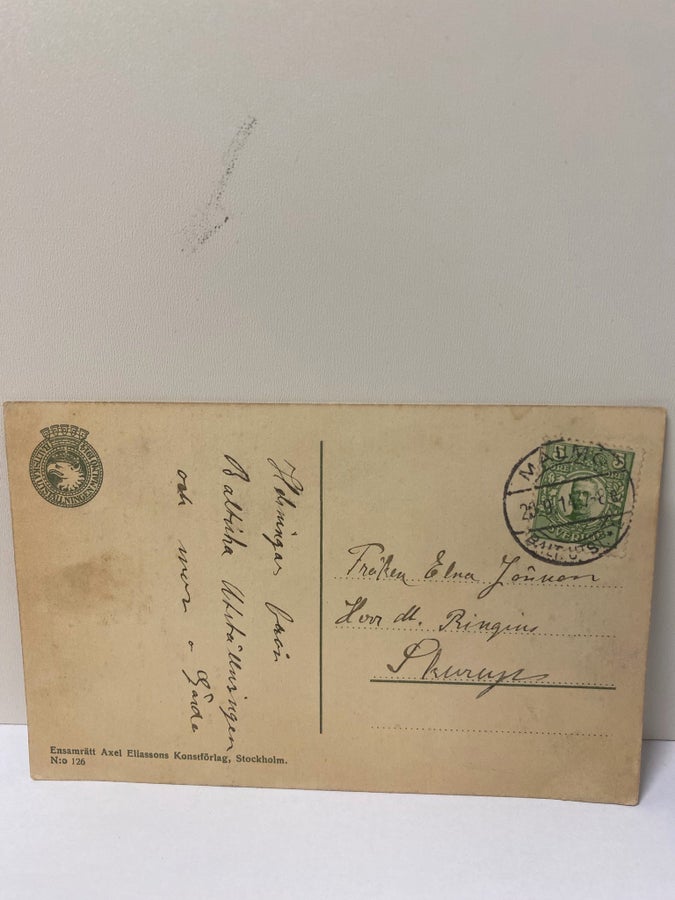 BALTISKA UTSTÄLLNINGEN MALMÖ 1914
Helsningar från
Baltiska Utställningen
och mor o
MALMÖ
BALT. UTS.
SVERIGE
5
Fröken Elna Jönsson
Herr M. Ringius
Skurup
Ensamrätt Axel Eliassons Konstförlag, Stockholm.
N:o 126